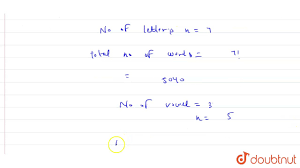 No of letters n = 7
total no of words = 7!
= 5040
No of vowel = 3
n = 5
doubtnut